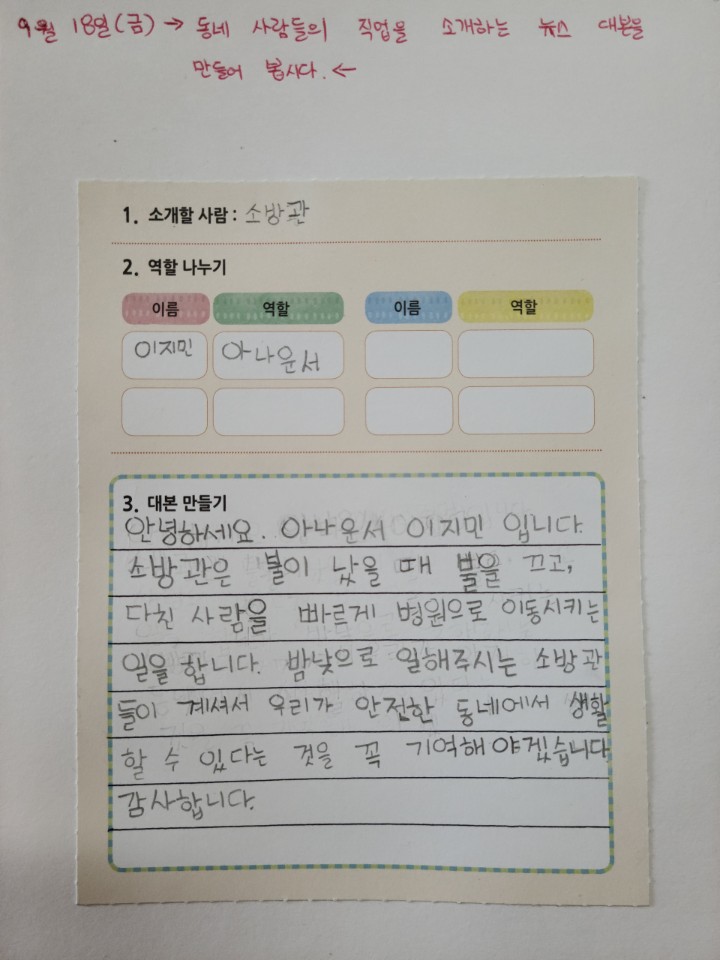 9월 18일(금) → 동네 사람들의 직업을 소개하는 뉴스 대본을
만들어 봅시다. ←
1. 소개할 사람 : 소방관
2. 역할 나누기
이름 역할 이름 역할
이지민 아나운서
3. 대본 만들기
안녕하세요. 아나운서 이지민 입니다.
소방관은 불이 났을 때 불을 끄고,
다친 사람을 빠르게 병원으로 이동시키는
일을 합니다. 밤낮으로 일해주시는 소방관
들이 계셔서 우리가 안전한 동네에서 생활
할 수 있다는 것을 꼭 기억해야겠습니다
감사합니다.